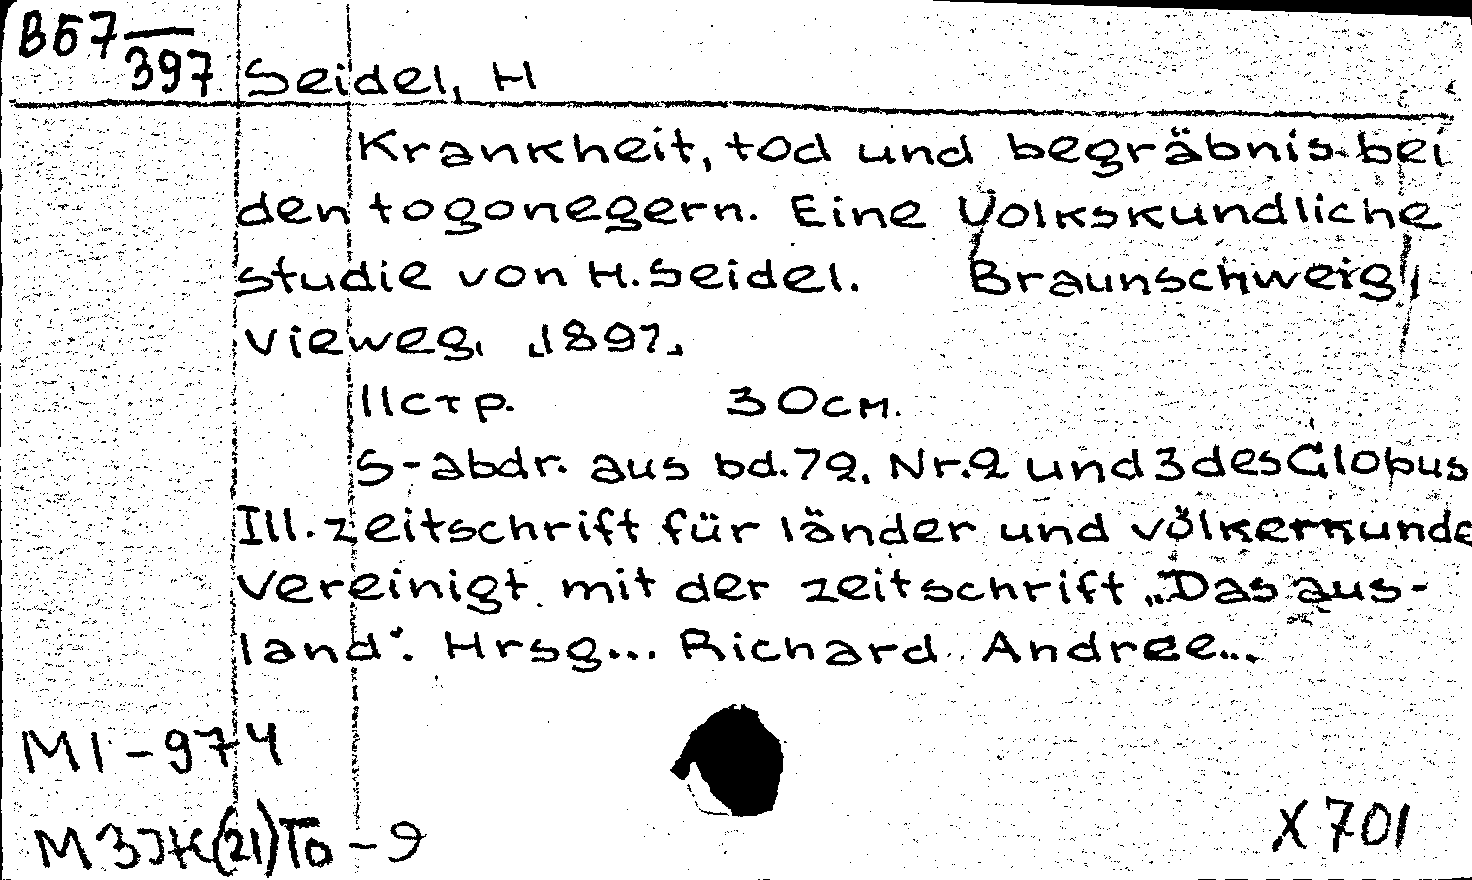 В67
397 Seidel, H
Krankheit, tod und begräbnis bei
den togonegern. Eine Volkskundliche
studie von H. Seidel. Braunschweig,
Vieweg, 1897.
11 стр. 30 см.
S-abdr. aus bd. 72, Nr. 2 und 3 des Globus
Ill. zeitschrift für länder und völkerkunde
vereinigt mit der zeitschrift „Das aus-
land". Hrsg... Richard Andree...
М1-974
М3Ж(21)То-9
X701